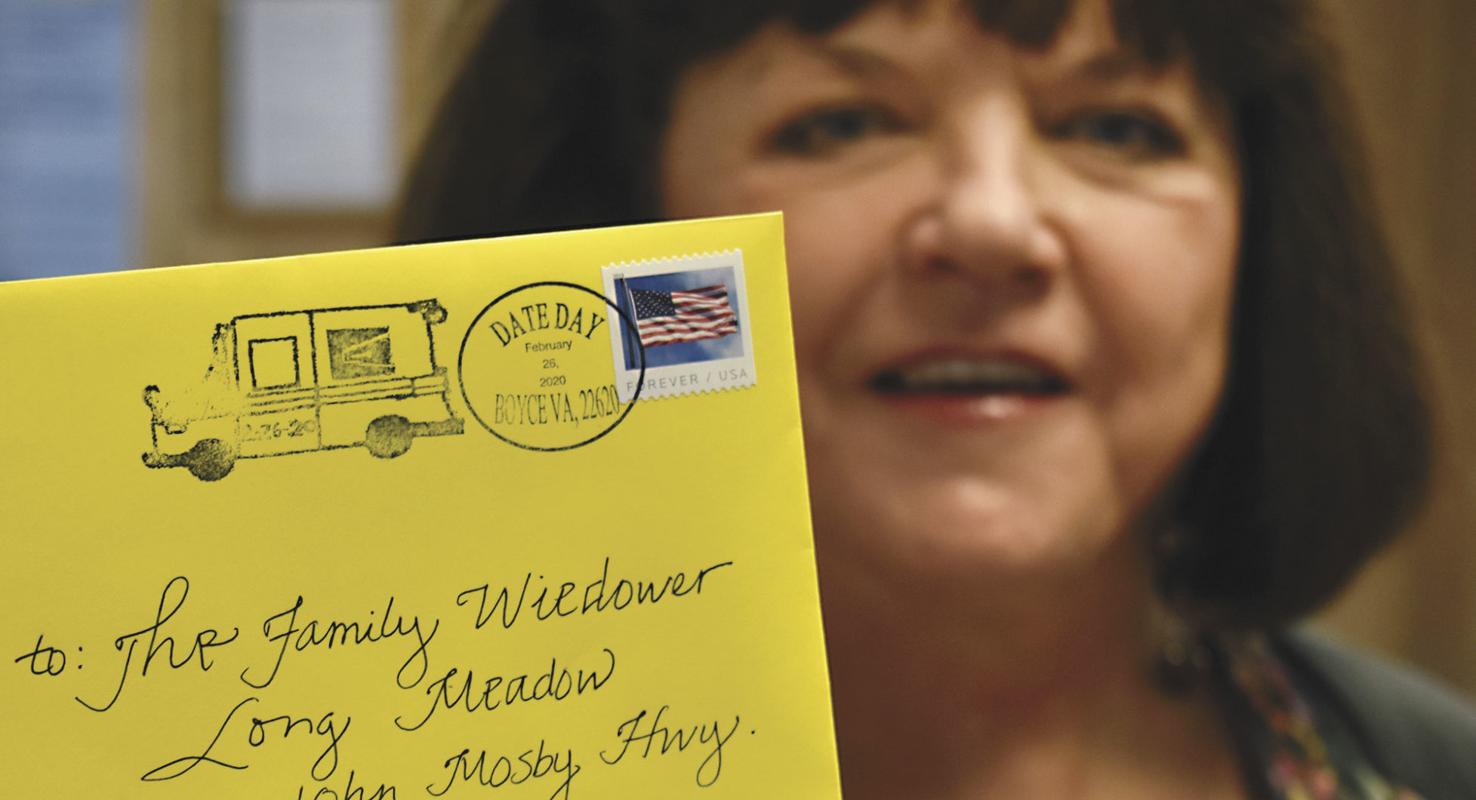 DATE DAY
February
26,
2020
BOYCE VA, 22620
FOREVER / USA
2-26-20
to: The Family Wiedower
Long Meadow
John Mosby Hwy.